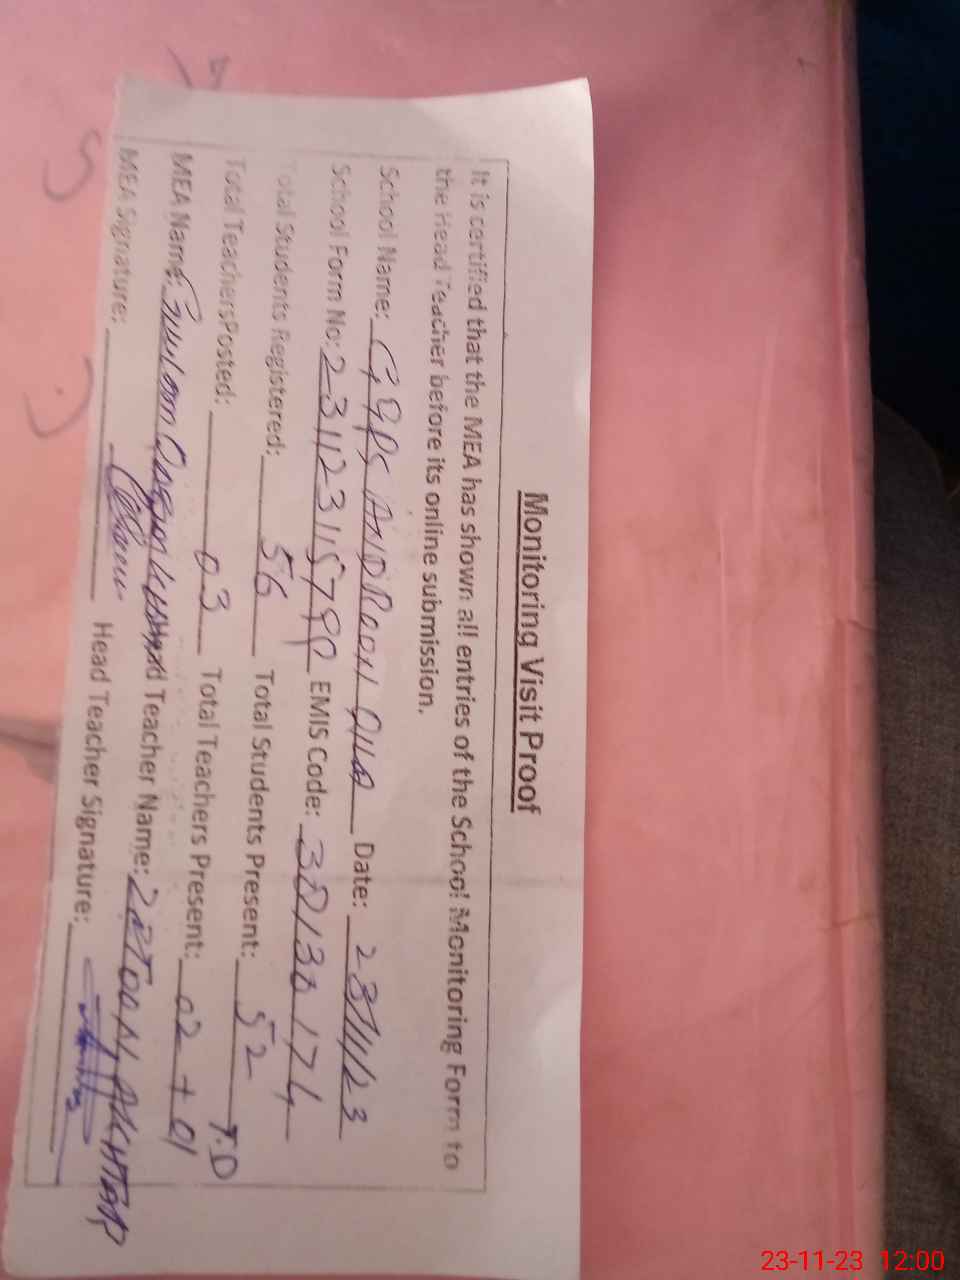 Monitoring Visit Proof
It is certified that the MEA has shown all entries of the School Monitoring Form to
the Head Teacher before its online submission.
School Name: GGPS Date: 23/11/23
School Form No: EMIS Code: 38130174
Total Students Registered: 56 Total Students Present: 52
Total TeachersPosted: 03 Total Teachers Present: 02 + 01 T.D
MEA Name: Head Teacher Name: AKHTAR
MEA Signature: Head Teacher Signature:
23-11-23 12:00